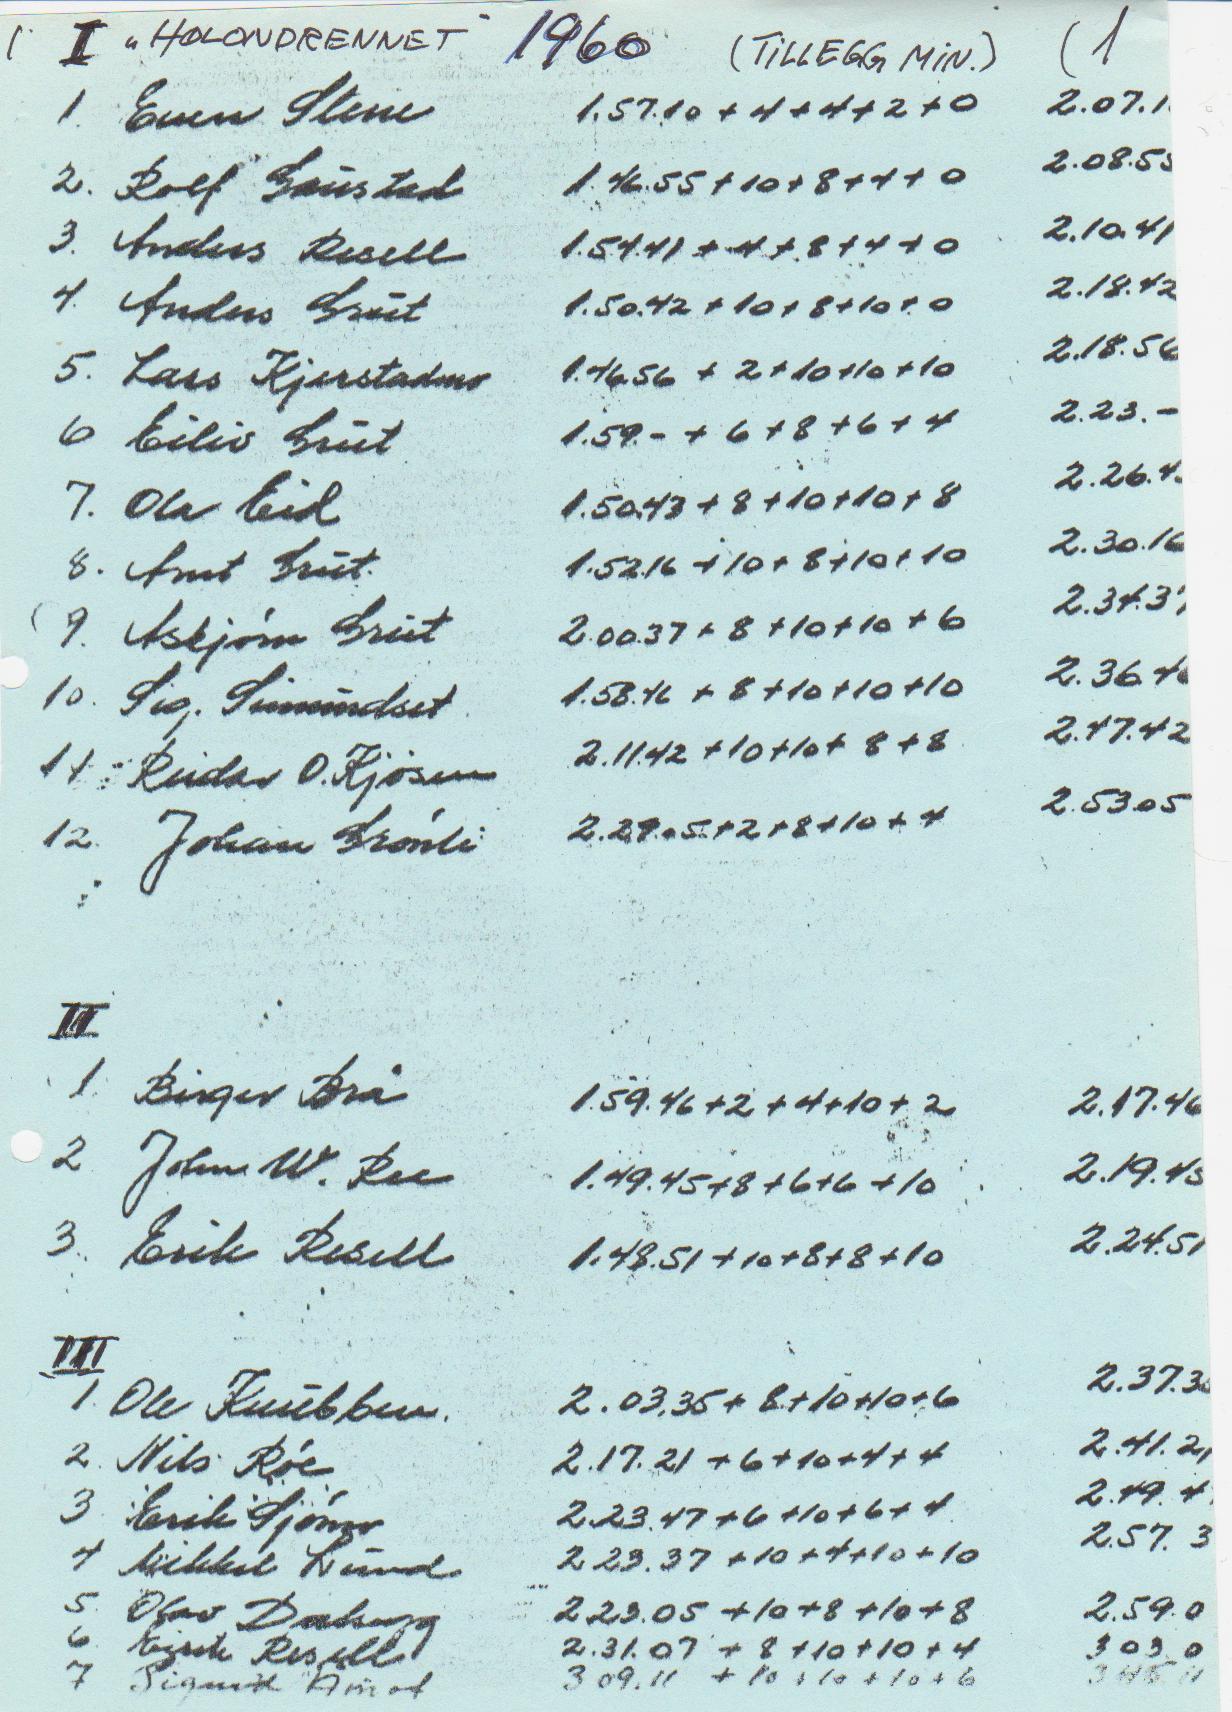 I "HOLONDRENNET" 1960 (TILLEGG MIN.) (1
1. Even Stene 1.57.10 + 4 + 4 + 2 + 0 2.07.1
2. Rolf Gaustad 1.46.55 + 10 + 8 + 4 + 0 2.08.55
3. Anders Resell 1.54.41 + 4 + 8 + 4 + 0 2.10.41
4. Anders Grut 1.50.42 + 10 + 8 + 10 + 0 2.18.42
5. Lars Kjerstadmo 1.46.56 + 2 + 10 + 10 + 10 2.18.56
6 Eiliv Grut 1.59.- + 6 + 8 + 6 + 4 2.23.-
7. Ola Eid 1.50.43 + 8 + 10 + 10 + 8 2.26.4
8. Arnt Grut. 1.52.16 + 10 + 8 + 10 + 10 2.30.16
9. Asbjørn Grut 2.00.37 + 8 + 10 + 10 + 6 2.34.37
10. Sig. Simundset 1.58.46 + 8 + 10 + 10 + 10 2.36.46
11. Reidar O. Kjøsen 2.11.42 + 10 + 10 + 8 + 8 2.47.42
12. Johan Grønli 2.29.05 + 2 + 8 + 10 + 4 2.53.05
II
1 Birger Brå 1.59.46 + 2 + 4 + 10 + 2 2.17.46
2 John W. Ree 1.49.45 + 8 + 6 + 6 + 10 2.19.45
3. Erik Resell 1.48.51 + 10 + 8 + 8 + 10 2.24.51
III
1. Ole Knubben. 2.03.35 + 8 + 10 + 10 + 6 2.37.35
2. Nils Røe 2.17.21 + 6 + 10 + 4 + 4 2.41.21
3 Erik 2.23.47 + 6 + 10 + 6 + 4 2.49.4
4 Mikkel Lund 2.23.37 + 10 + 4 + 10 + 10 2.57.3
5 Olav 2.23.05 + 10 + 8 + 10 + 8 2.59.0
6 Eirik Resell 2.31.07 + 8 + 10 + 10 + 4 3 03.0
7 Sigurd 3 09.11 + 10 + 10 + 10 + 6 3 45.11